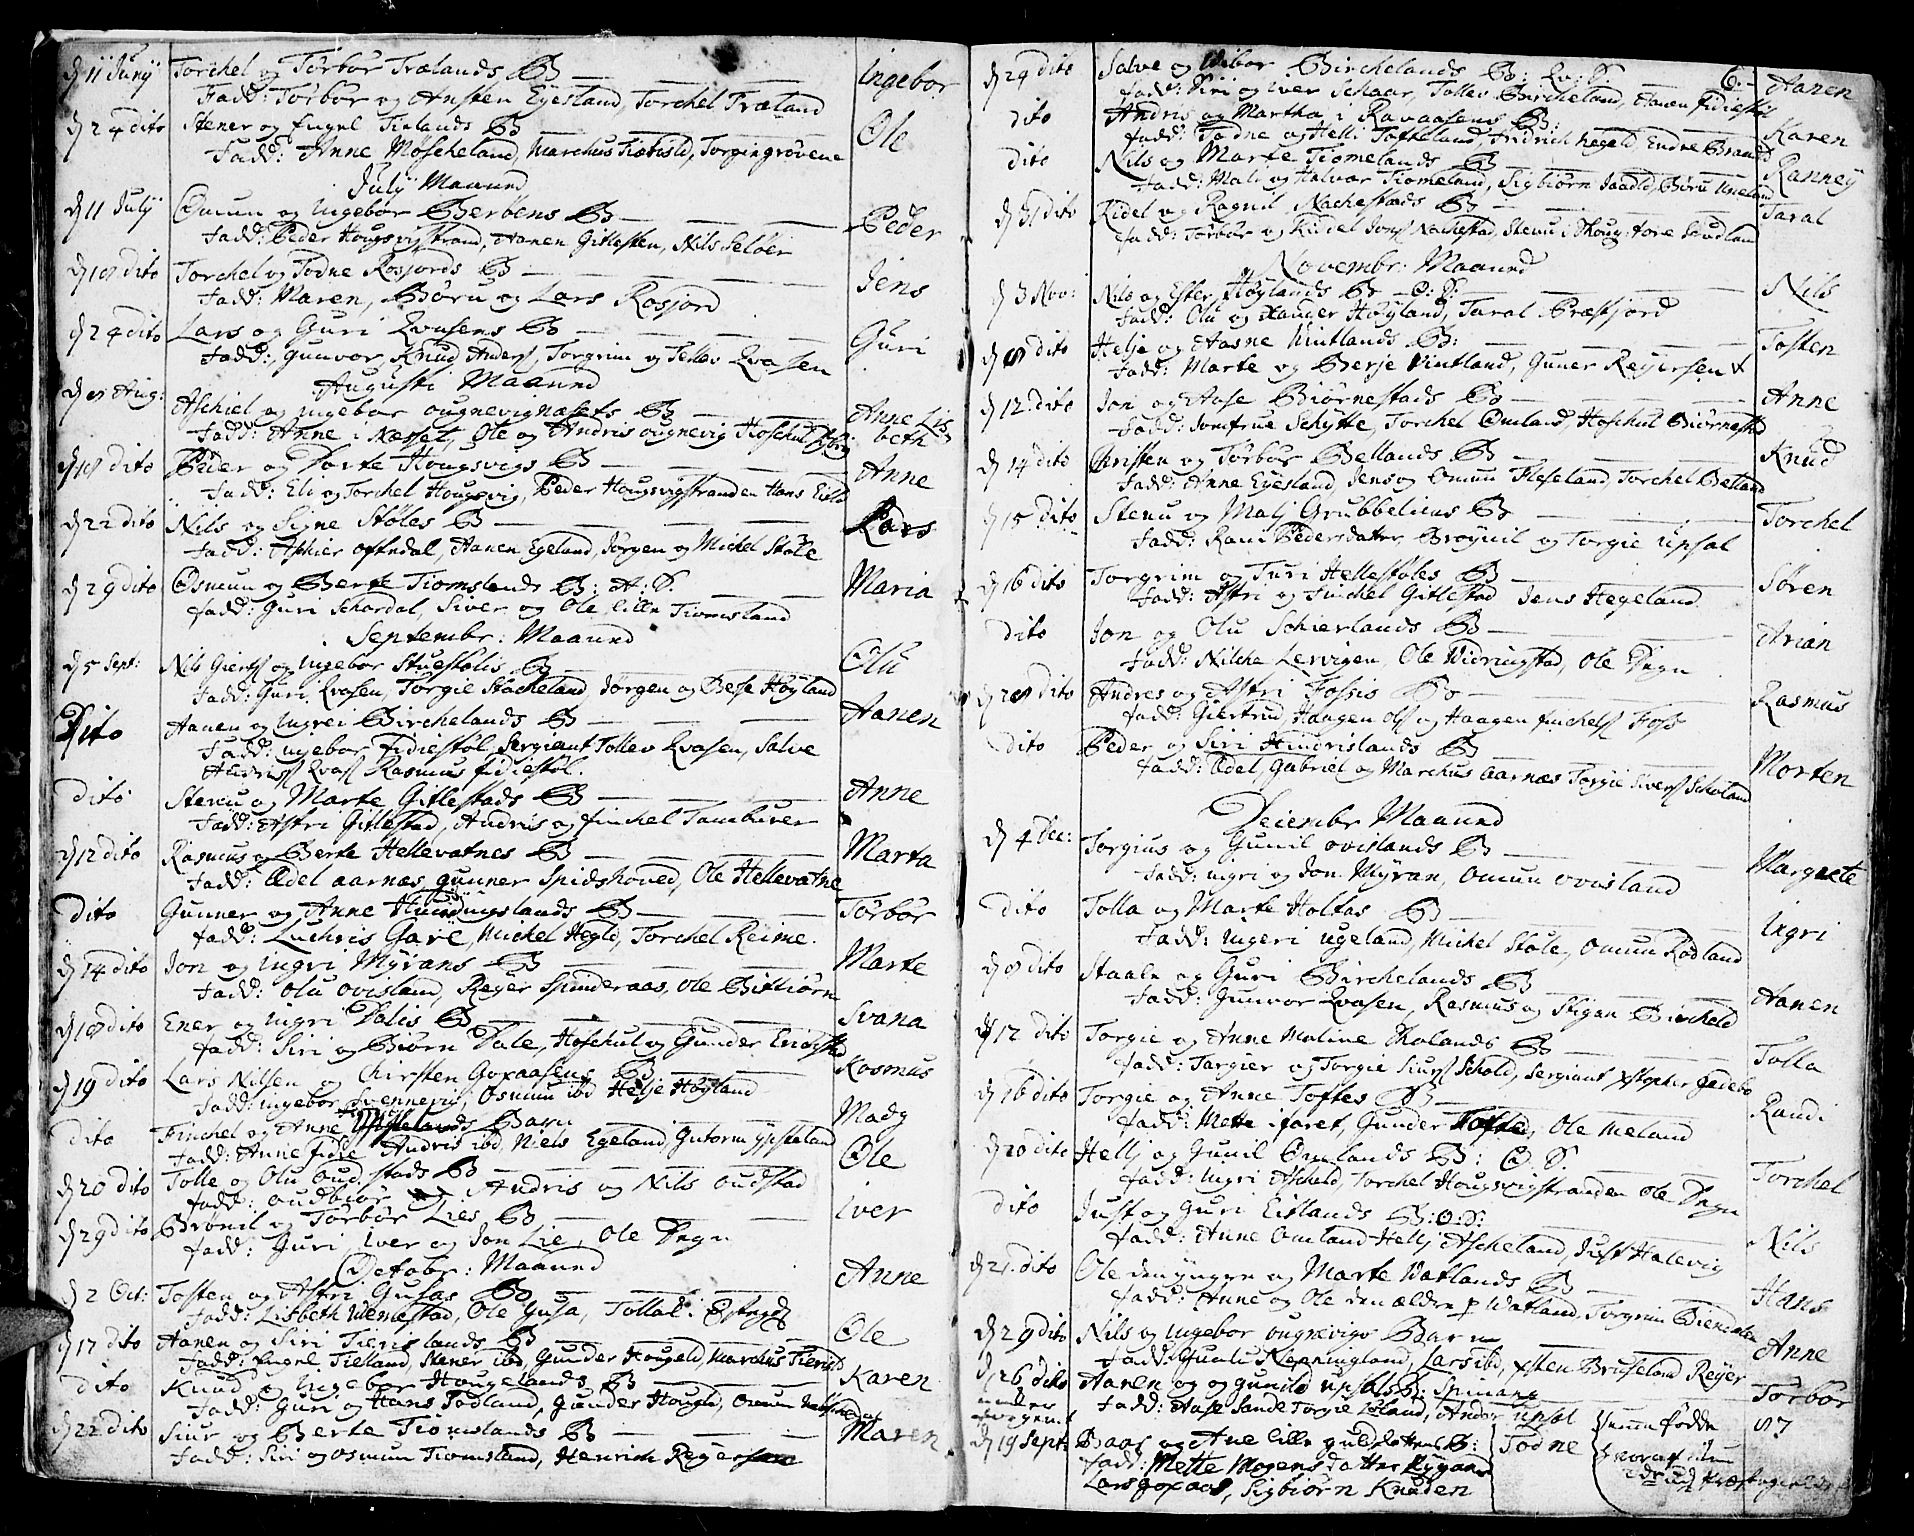 d 11 Junij Torchel og Torbor Trælands B Ingebor
Fadd: Torbor og Ansten Eyesland, Torchel Træland
d 24 dito Stener og Engel Tielands B Ole
Fadd: Anne Moscheland, Marchus
Julij Maaned
d 11 Julij Omun og Ingebor Berbens B Peder
Fadd: Peder Hougsvigstrand, Aanen Gitlesten, Nils Seloer
d 18 dito Torchel og Todne Rosjords B Jens
Fadd: Maren, Boru og Lars Rosjord
d 24 dito Lars og Guri Qvasens B Guri
Fadd: Gunvor, Knud Anders, Torgrim og Tellev Qvasen
Augusti Maaned
d 8 Aug: Aschiel og Ingebor ougnevignæsets B Anne Lis
beth
Fadd: Anne i Næsset, Ole og Andris ougnevig Hoschul
d 18 dito Peder og Dorte Hougsvigs B Anne
Fadd: Eli og Torchel Hougsvig, Peder Hougsvigstranden Hans
d 22 dito Nils og Signe Støles B Lars
Fadd: Aschier oftedal, Aanen Egeland, Jørgen og Michel Støle
d 29 dito Osmun og Berte Tiomslands B: A: S. Maria
Fadd: Guri Schordal, Siver og Ole lille Tiomsland
Septembr: Maaned
d 5 Sept: Nils Giers og Ingebor Stuestølis B Olu
Fadd: Guri Qvasen, Torgie Stacheland, Jørgen og Bese Høyland
Dito Aanen og Ingrei Birchelands B Aanen
Fadd: Ingebor Fidiestøl, Sergiant Tollev Qvasen, Salve
Rasmus fidiestøl.
dito Stenu og Marte Gitlestads B Anne
Fadd: Astri Gitlestad, Andris og finchel Tambuver
d 12 dito Rasmus og Berte Hellevatnes B Marta
Fadd: Edel aarnæs gunner Spidshoved, Ole Hellevatne
dito Gunner og Anne B Torbor
Fadd: Luchris Gare, Michel Hegld, Torchel Reime.
d 14 dito Jon og Ingri Myrans B Marte
Fadd: Olu ovisland, Reyer Spinderaas, Ole Bittiørn
d 18 dito Ener og Ingri Dalis B Svana
Fadd: Siri og Biørn Dale, Hoschul og Gunder
d 19 dito Lars Nilsen og Chirsten Goxaasens B Rasmus
Fadd: Ingebor Svennevig, Osmun ibd Helje Høyland
dito Finchel og Anne Barn Madz
Fadd: Anne fidie Andris ibd Niels Egeland, Gutorm
d 20 dito Tolle og Olu oudstads B Ole
Fadd: oudbior Andris og Nils oudstad
d 29 dito Brønil og Torbor Lies B Iver
Fadd: Guri, Iver og Jon Lie, Ole Degn
Octobr: Maaned
d 2 Oct: Tosten og Astri Gusas B Anne
Fadd: Lisbeth Uenestad, Ole Gusa,
d 17 dito Aanen og Siri B Ole
Fadd: Engel Tieland, Stener ibd, Gunder Hougeld, Marchus
dito Knud og Ingebor Hougelands B Karen
Fadd: Guri og Hans Todland, Gunder Hougld, Omun
d 22 dito Siur og Berte Tiomslands B Maren
Fadd: Siri og Osmun Tiomsland, Henrich Reyersen
6.
d 24 dito Salve og Wibor Birchelands B: Qv: S: Aanen
Fadd: Siri og Iver Schaar, Tollev Bircheland, Aanen fidiestøl
dito Andris og Martha i Ravaasens B: Karen
Fadd: Todne og Helli Tofteland, Fridrich hegeld, Endre
dito Nils og Marte Tiomelands B Ranney
Fadd: Mali og Halvor Tiomeland, Sigbiørn
d 31 dito Kidel og Ragnil Nachestads B Taral
Fadd: Torbor og Kidel Jons Nachestad, Stenu i Skoug,
Novembr: Maaned
d 3 Nov: Nils og Ester Høylands B Nils
Fadd: Olu og Xander Høyland, Taral Præstjord
d 8 dito Helje og Aasne Vintlands B: Tosten
Fadd: Marte og Berje Vintland, Guner Reyersen
d 12 dito Jon og Aase Biørnestads B Anne
Fadd: Jomfrue Schytte, Torchel Omland, Hoschul Biørnestad
d 14 dito Christen og Torbor Bellands B Knud
Fadd: Anne Eyesland, Jens og Omun Fleseland, Torchel Betland
d 15 dito Stenu og Malj Grubbeliens B Torchel
Fadd: Rani Pedersdatter, Brøynil og Torgie upsal
d 16 dito Torgrim og Turi Hellestøles B Søren
Fadd: Astri og finchel Gitlestad Jens Hegeland
dito Jon og Olu Schierlands B Arian
Fadd: Nilche Lervigen, Ole Vidringstad, Ole Degn
d 28 dito Andres og Astri Fossis B Rasmus
Fadd: Giertrud, Haagen Ols og Haagen finchels Foss
dito Peder og Siri Hindrislands B Morten
Fadd: Edel, Gabriel og Marchus aarnæs Torgie Sivers Scholand
Deiembr Maaned
d 4 Dec: Torgius og Gunil ovislands B Margrete
Fadd: ingri og Jon Myran, Omun ovisland
dito Tolla og Marte Holtas B Ingri
Fadd: Ingeri ugeland, Michel Støle, Omun Rødland
d 8 dito Staale og Guri Birchelands B Aanen
Fadd: Gunvor Qvasen, Rasmus og Stigan Bircheld
d 12 dito Torgie og Anne Maline Skolands B Tolla
Fadd: Targier og Torgie Siurs Schold, Sergiant Xstopher Gedebo
d 16 dito Torgie og Anne Toftes B Randi
Fadd: Mette i faret, Gunder Tofte, Ole Meland
d 20 dito Hellj og Gunil Omlands B: O S. Torchel
Fadd: Ingri Ascheld, Torchel Hougsvigstranden Ole Degn
dito Just og Guri Eitlands B: O: S: Nils
Fadd: Anne Omland Hellj Ascheland, Just Halevig
d 21 dito Ole den yngre og Marte Watlands B Hans
Fadd: Anne og Ole den ældre p Watland, Torgrim
d 29 dito Nils og Ingebor ougnevigs Barn Anne
Fadd: Gunli Nenningland, Lars ibd, Xsten Bruseland Reyer
d 26 dito Aanen og gunild Upsals B: Spinang Torbor
Fadd: Aase Sande Torgie Andor upsal
d 19 Sept: Baar og Ane lille B: Todne
Fadd: Mette Mogens datter
Lars goxaas, Sigbiørn Knuden
87